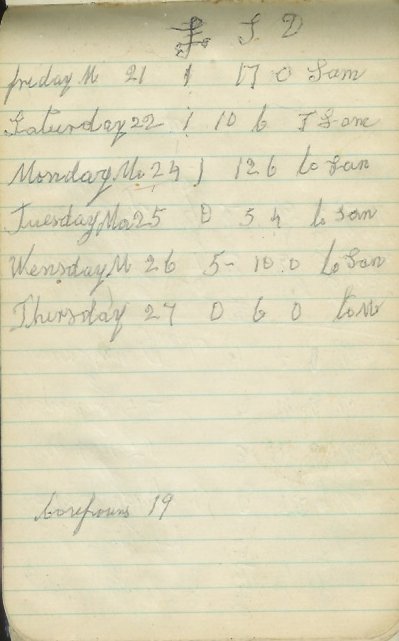 £ S D
freday M 21 1 17 0 Sam
Saturday 22 1 10 6 T Sam
Monday Ma 24 1 12 6 to San
Tuesday Ma 25 0 5 4 to San
Wensday M 26 5 - 10 0 to San
Thursday 27 0 6 0 to M
19